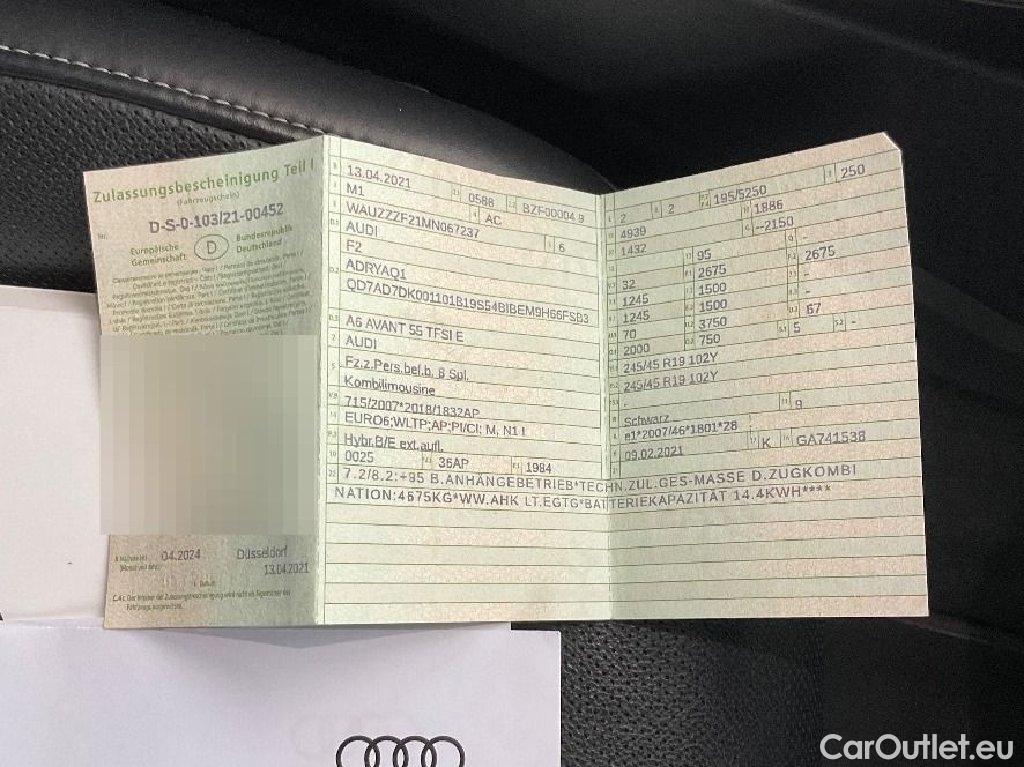 Zulassungsbescheinigung Teil I
(Fahrzeugschein)
Nr. D-S-0-103/21-00452
Europäische Gemeinschaft
D
Bundesrepublik Deutschland
04.2024 Düsseldorf
13.04.2021
13.04.2021 0588 BZF00004 9
M1 AC
WAUZZZF21MN067237 6
AUDI
F2
ADRYAQ1
QD7AD7DK001101B19S54BIBEM9H66FSB3
A6 AVANT 55 TFSI E
AUDI
Fz.z.Pers.bef.b. 8 Spl.
Kombilimousine
715/2007*2018/1832AP
EURO6;WLTP;AP;PI/CI; M, N1 I
Hybr.B/E ext.aufl.
0025 36AP 1984
2 2 195/5250 250
4939 1886
1432 --2150
95 -
32 2675 2675
1245 1500 -
1245 1500 -
70 3750 67
2000 750 5 -
245/45 R19 102Y
245/45 R19 102Y
-
Schwarz 9
e1*2007/46*1801*28
09.02.2021 K GA741538
7.2/8.2:+95 B.ANHÄNGEBETRIEB*TECHN.ZUL.GES-MASSE D.ZUGKOMBI
NATION:4675KG*WW.AHK LT.EGTG*BATTERIEKAPAZITÄT 14.4KWH****
CarOutlet.eu